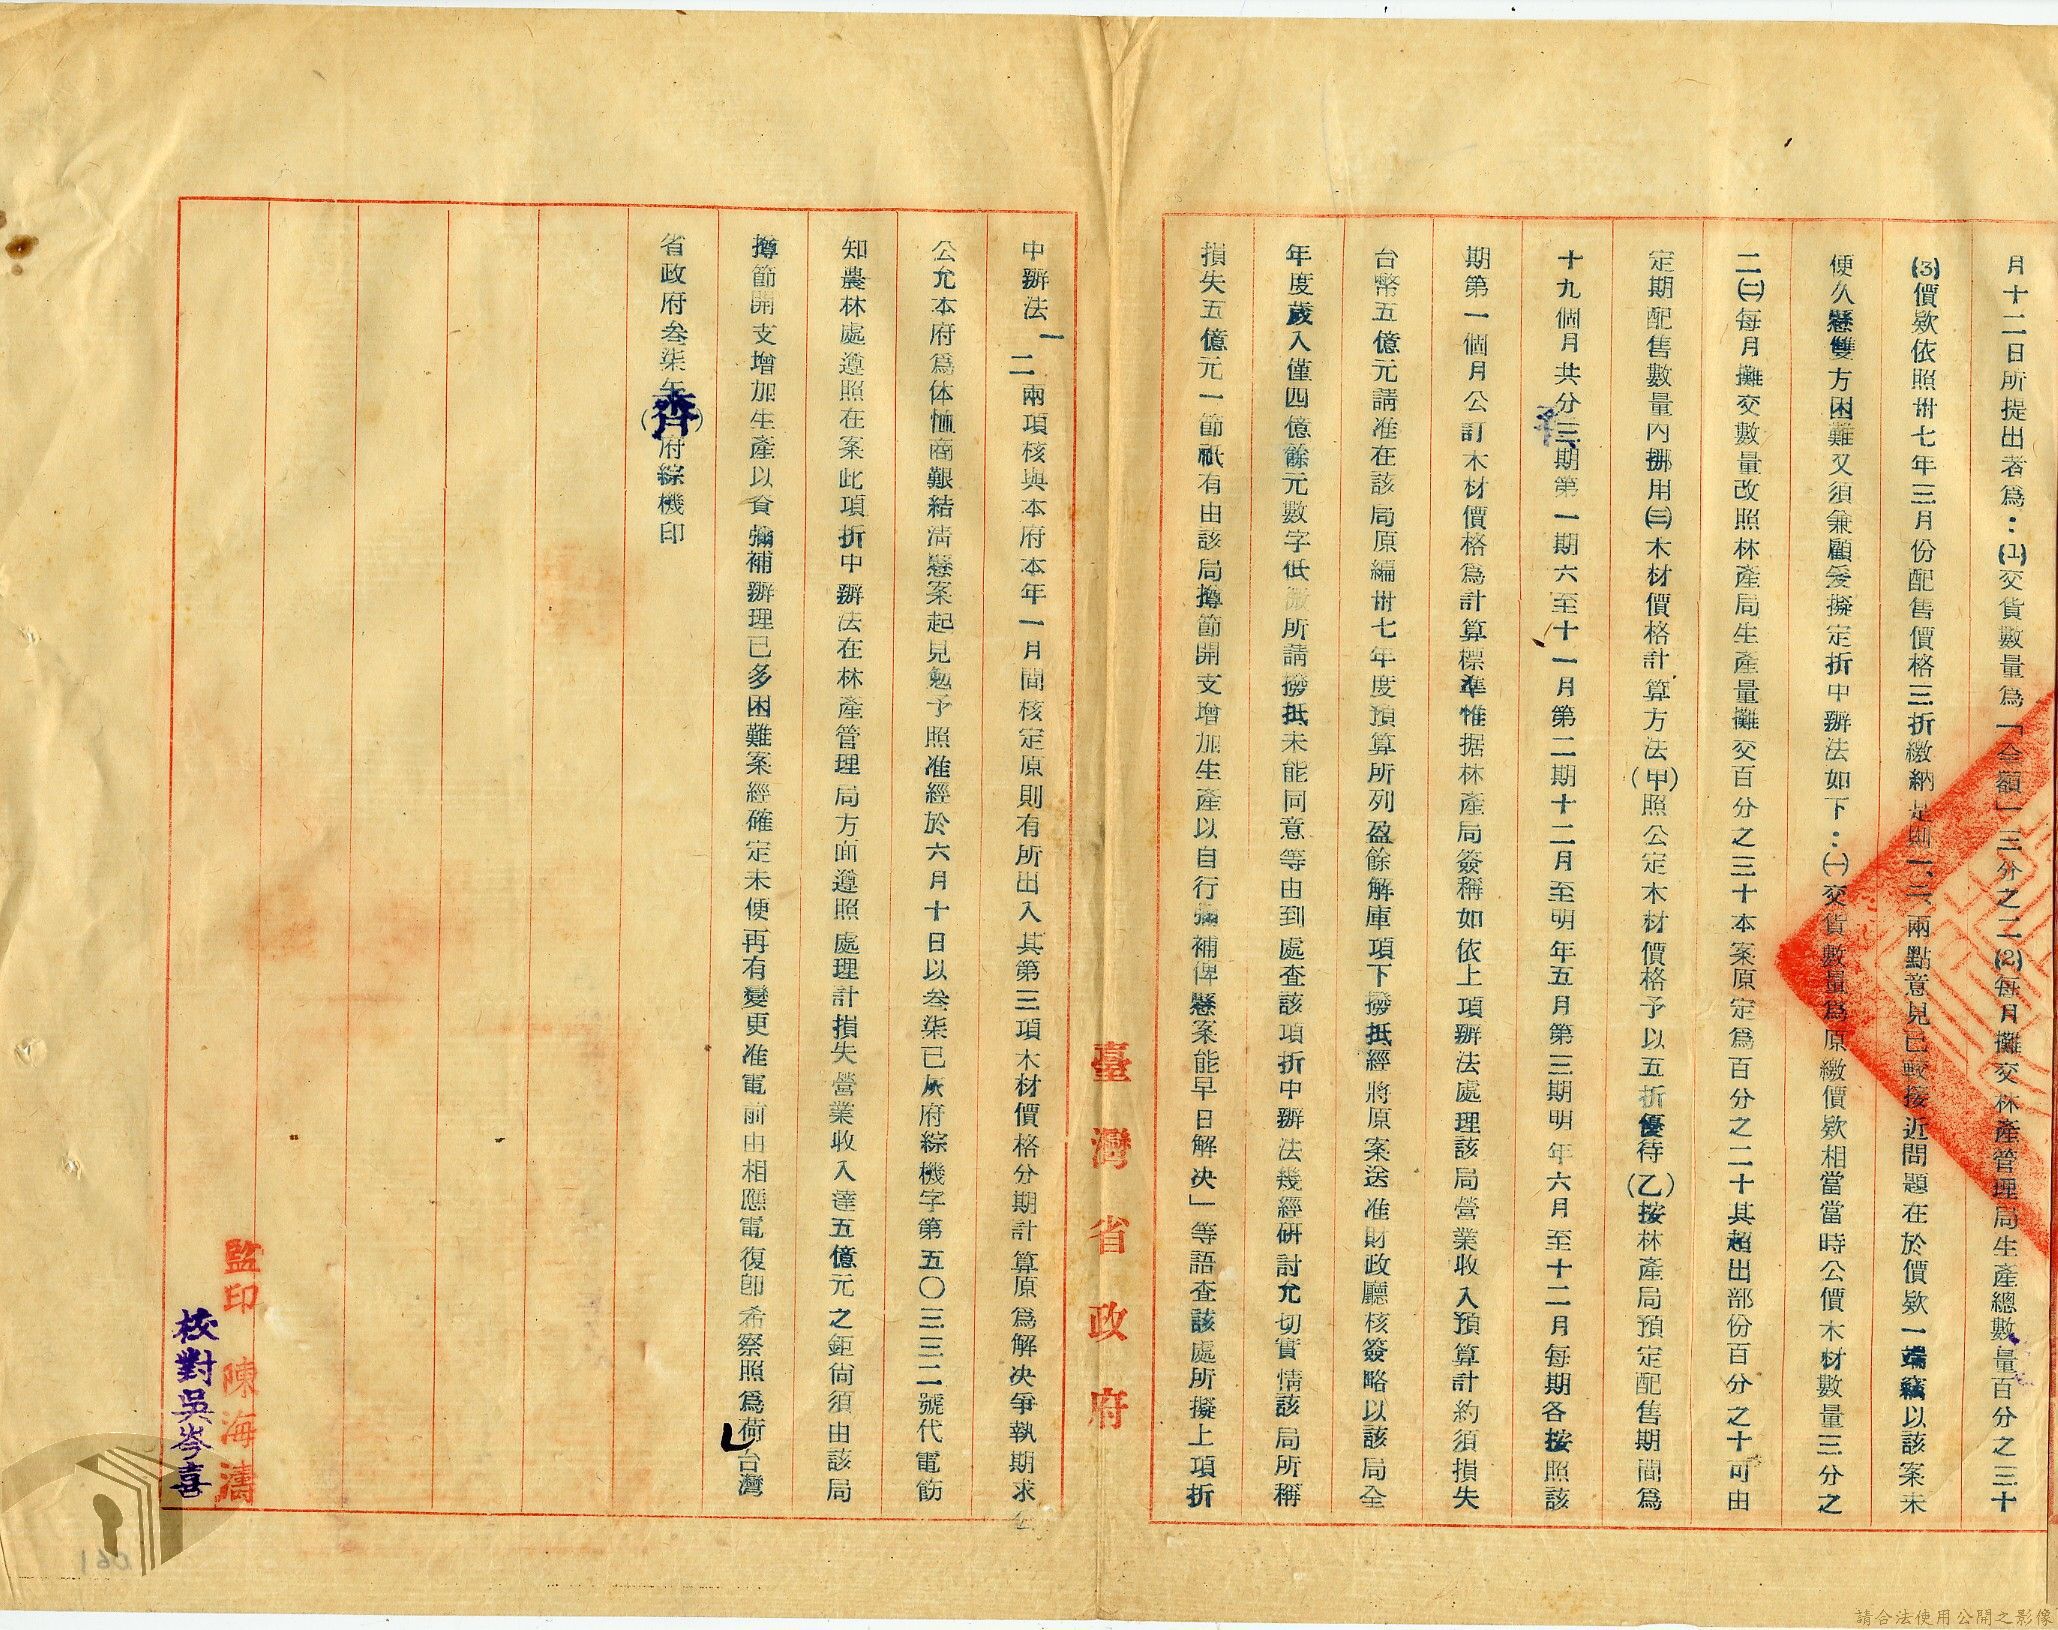 月十二日所提出者為：(1)交貨數量為「全額」三分之二(2)每月攤交林產管理局生產總數量百分之三十
(3)價欵依照卅七年三月份配售價格三折繳納是則一、二、兩點意見已較接近問題在於價欵一端竊以該案未
便久懸雙方困難又須兼顧爰擬定折中辦法如下：㈠交貨數量為原繳價欵相當當時公價木材數量三分之
二㈡每月攤交數量改照林產局生產量攤交百分之三十本案原定為百分之二十其超出部份百分之十可由
定期配售數量內挪用㈢木材價格計算方法(甲)照公定木材價格予以五折優待(乙)按林產局預定配售期間為
十九個月共分三期第一期六至十一月第二期十二月至明年五月第三期明年六月至十二月每期各按照該
期第一個月公訂木材價格為計算標準惟据林產局簽稱如依上項辦法處理該局營業收入預算計約須損失
台幣五億元請准在該局原編卅七年度預算所列盈餘解庫項下撥抵經將原案送准財政廳核簽略以該局全
年度歲入僅四億餘元數字低微所請撥抵未能同意等由到處查該項折中辦法幾經研討允切實情該局所稱
損失五億元一節祇有由該局撙節開支增加生產以自行彌補俾懸案能早日解決」等語查該處所擬上項折
臺灣省政府
中辦法一二兩項核與本府本年一月間核定原則有所出入其第三項木材價格分期計算原為解決爭執期求公
公允本府為体恤商艱結清懸案起見勉予照准經於六月十日以叁柒已灰府綜機字第五〇三三二號代電飭
知農林處遵照在案此項折中辦法在林產管理局方面遵照處理計損失營業收入達五億元之鉅尚須由該局
撙節開支增加生產以資彌補辦理已多困難案經確定未便再有變更准電前由相應電復卽希察照為荷台灣
省政府叁柒午(齊)府綜機印
監印 陳海濤
校對吳岑喜
061
請合法使用公開之影像